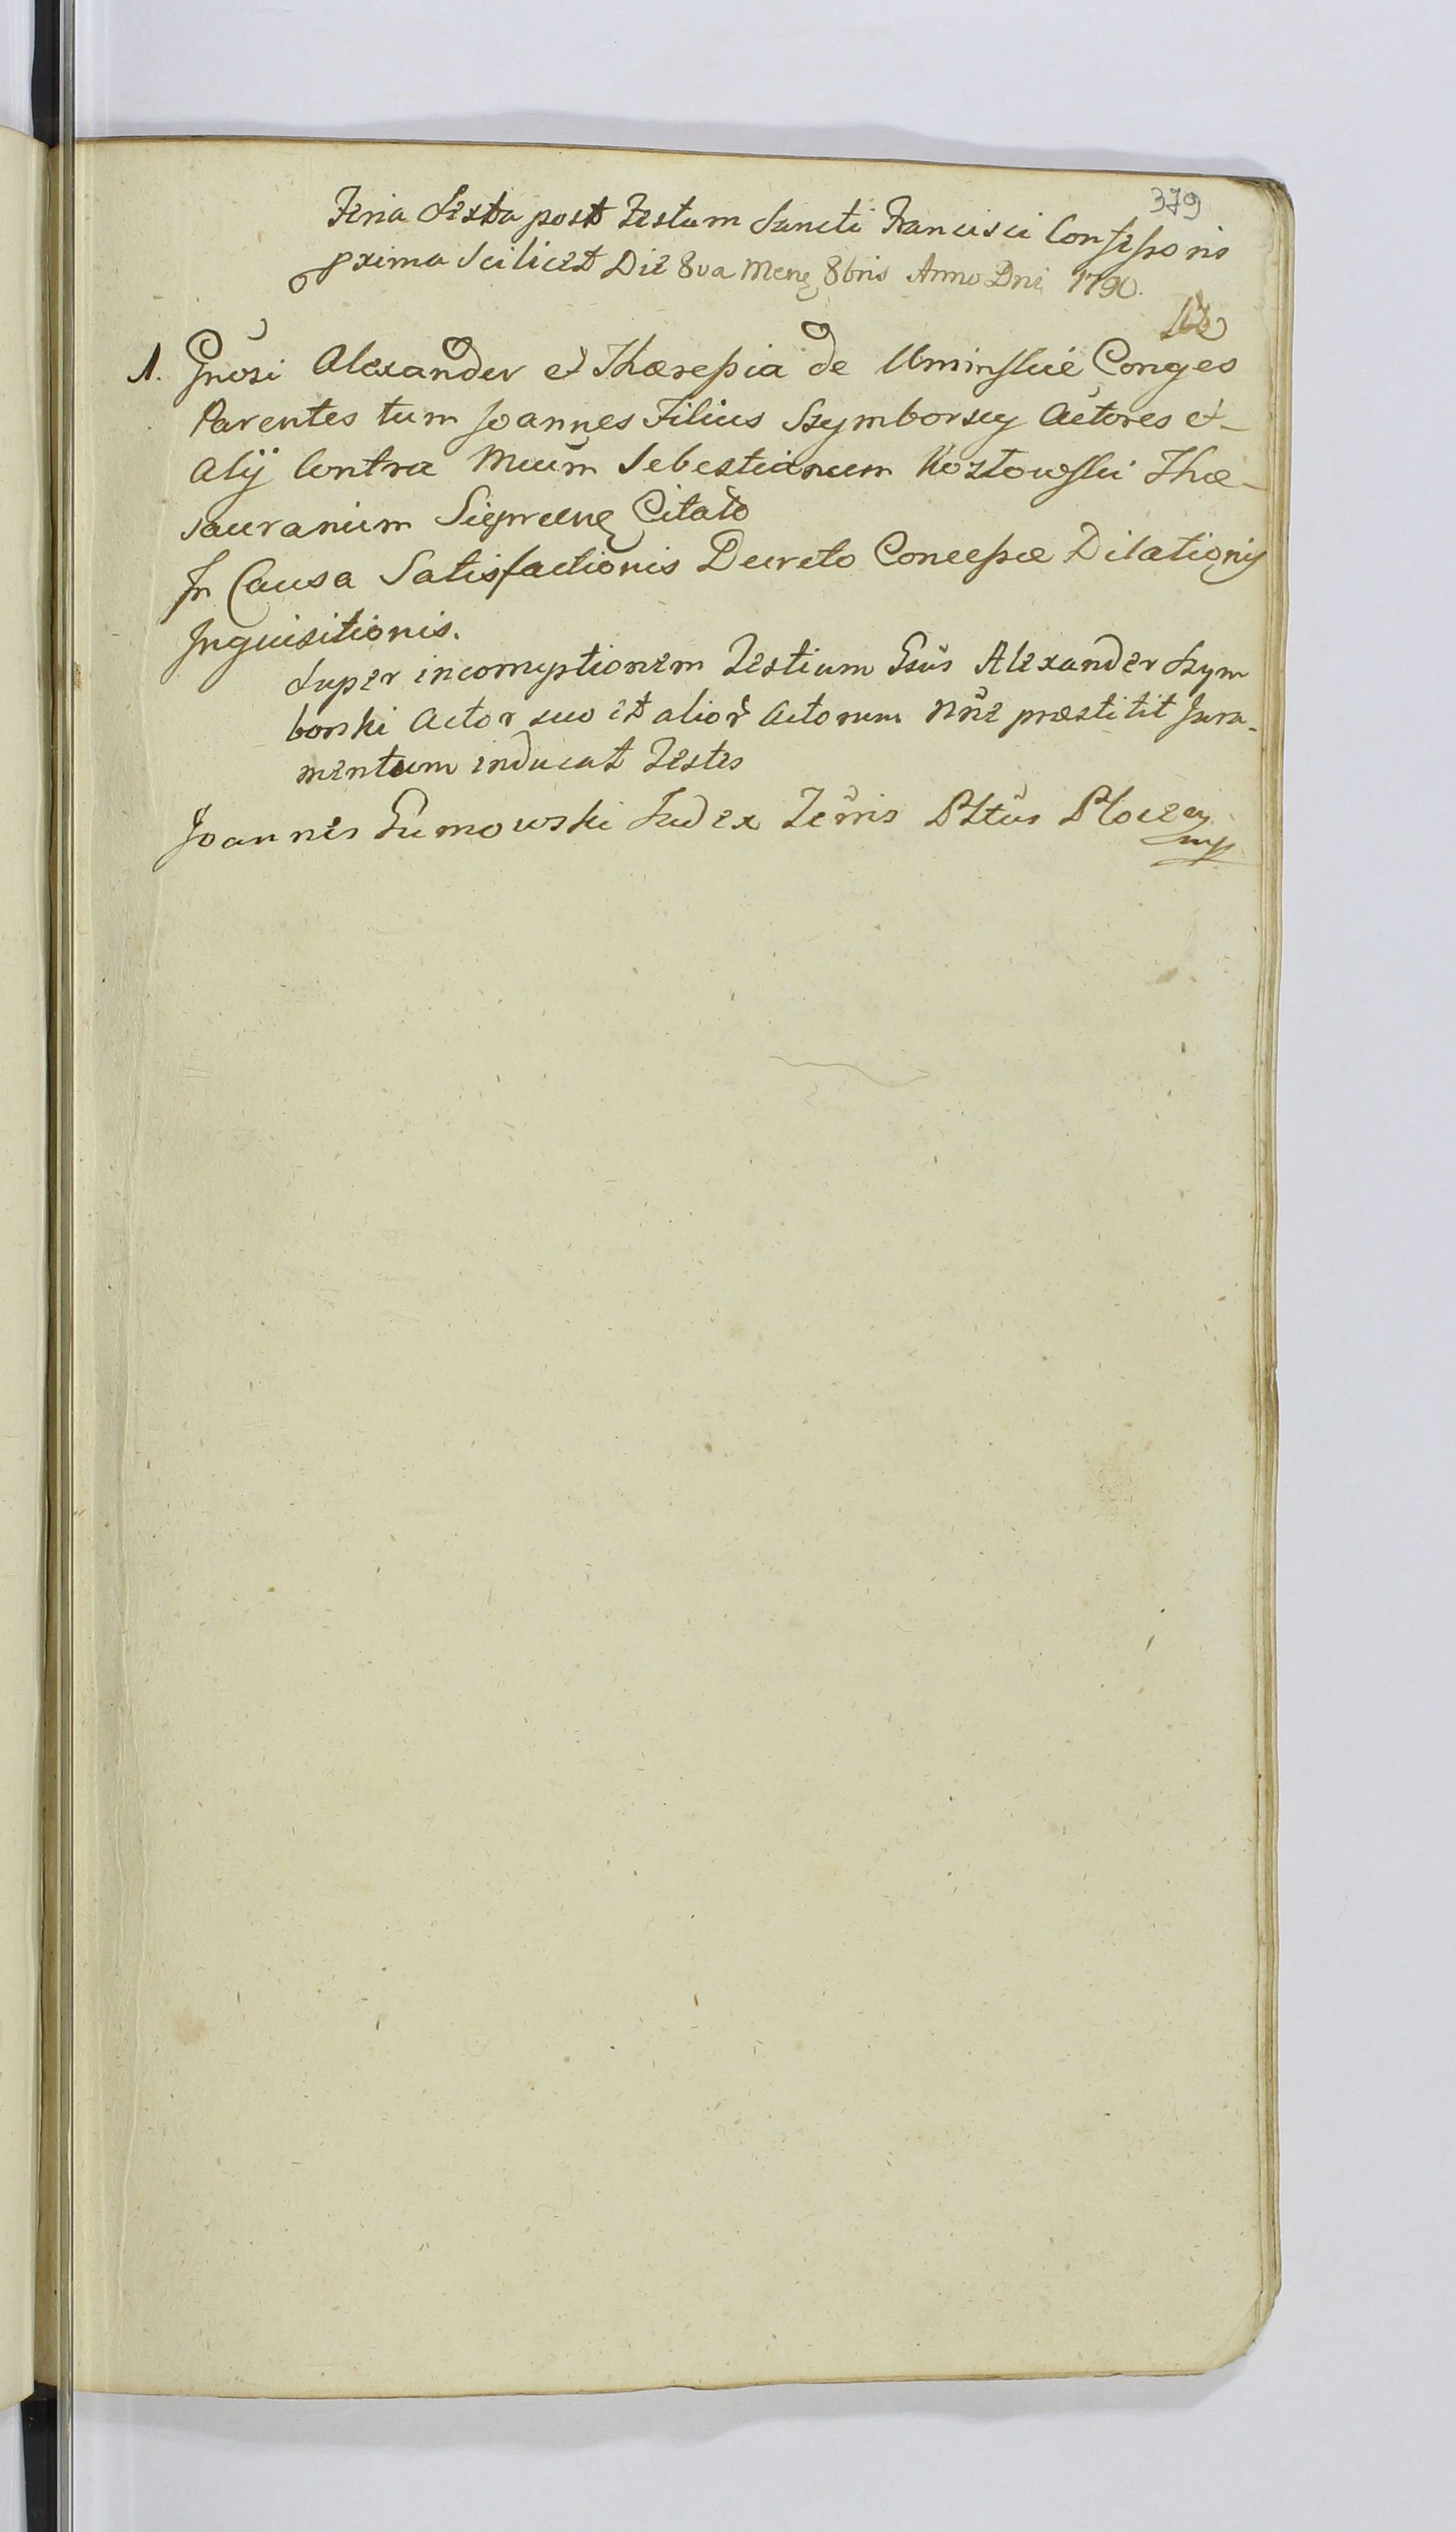 379
Feria Sexta post Festum Sancti Francisci Confessoris
pxima Scilicet Die 8va Mens 8bris Anno Dni 1790.
1. Gnosi Alexander et Thæressia de Uminskie Conges
Parentes tum Joannes Filius Szymborscy Actores et
Alij Contra Mcum Sebestianum Kozłowski The-
sauranium Sierpcens Citato
In Causa Satisfactionis Decreto Concessæ Dilationis
Inquisitionis.
Super incorruptionem Testium Gsus Alexander Szym
borski Actor suo et alior Actorum nne præstitit Jura-
mentum inducat Testes
Joannes Gumowski Judex Terris Pltus Plocen
mp